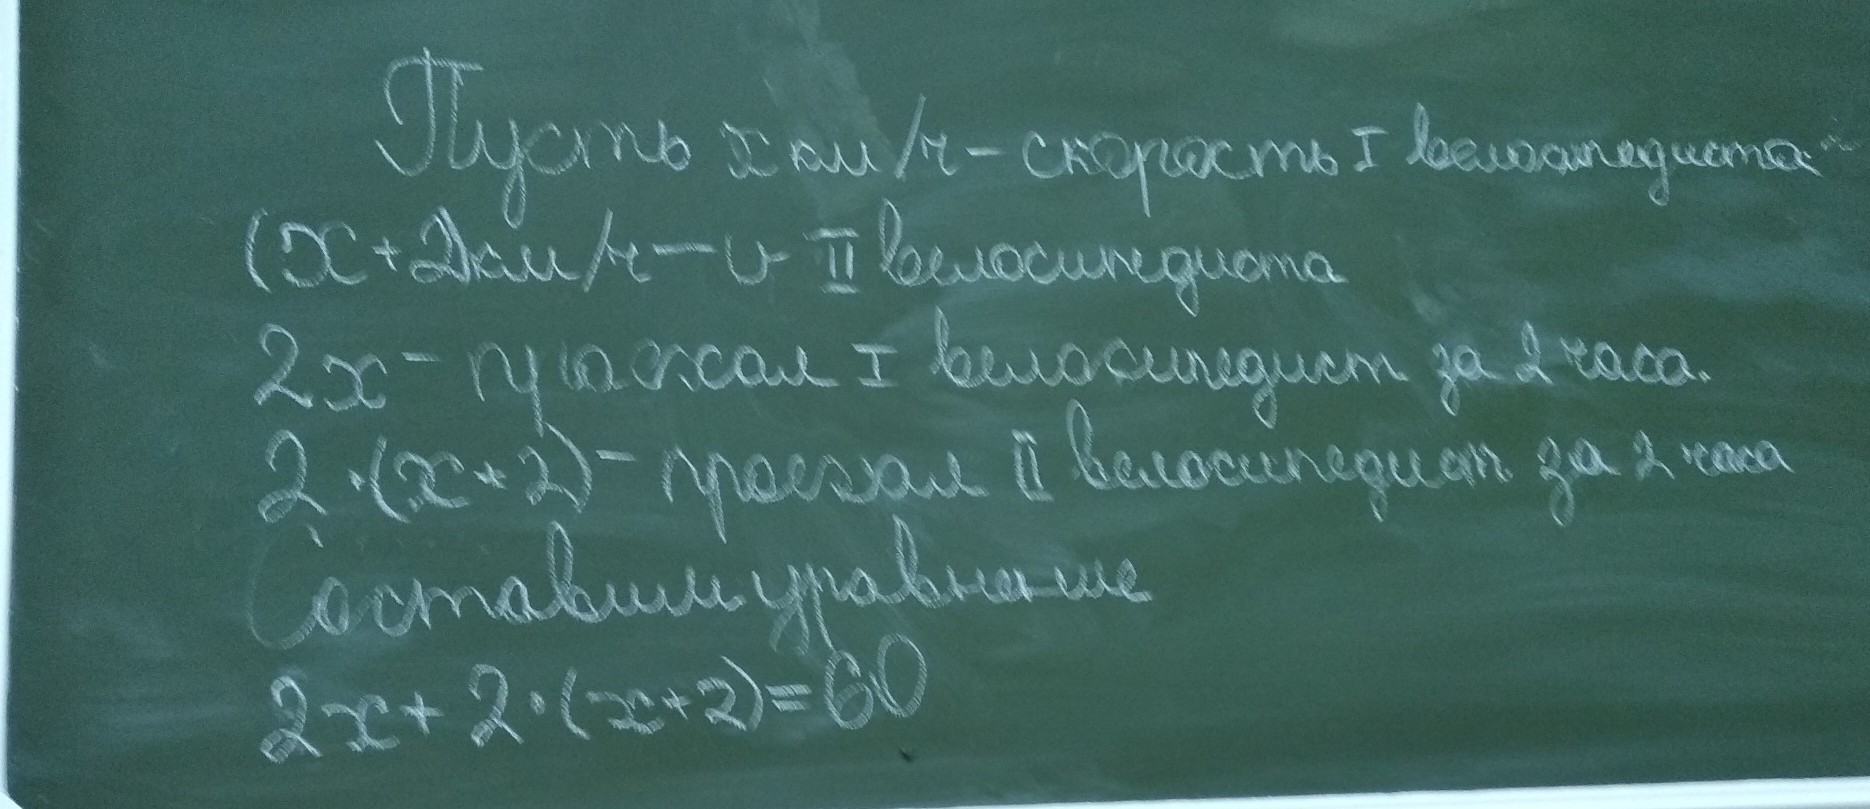 Пусть х км/ч - скорость I велосипедиста
(х+2)км/ч - v II велосипедиста
2х - проехал I велосипедист за 2 часа.
2·(х+2) - проехал II велосипедист за 2 часа
Составим уравнение
2х+2·(х+2)=60